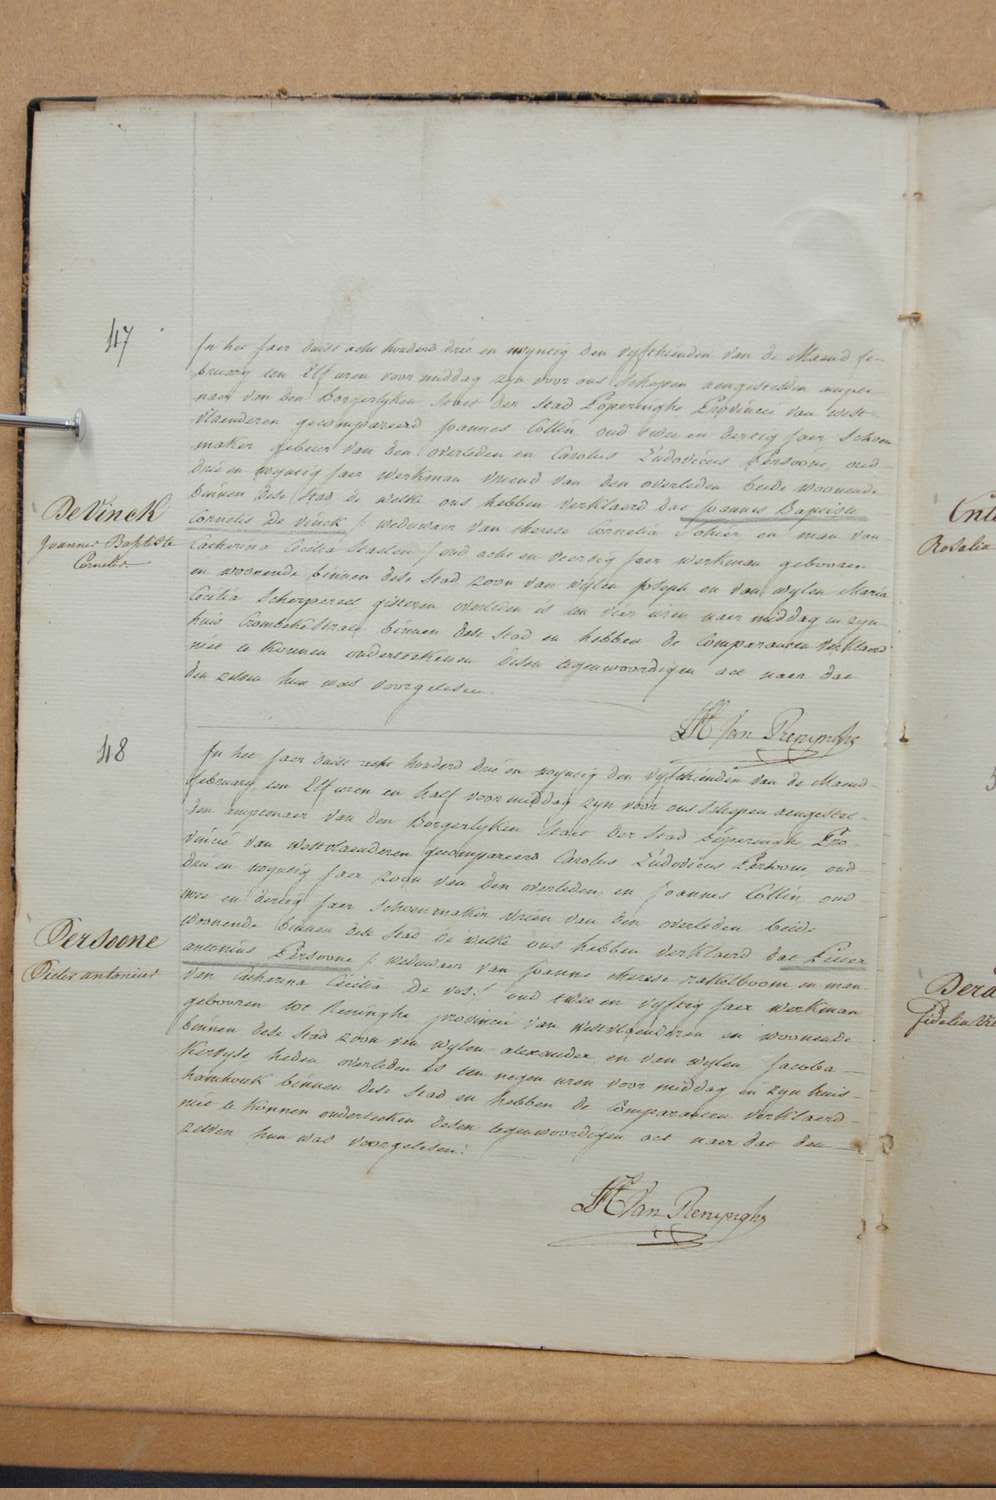 47
In het jaer duist acht honderd drie en twyntig den vyfthienden van de Maend fe-
bruary ten Elf uren voor middag zyn voor ons Schepen aengestelden ampte
naer van den Borgerlyken Staet der Stad Poperinghe Provincie van West-
vlaenderen gecompareerd Joannes Collin oud twee en dertig jaer Schoen
maker gebeur van den overleden en Carolus Ludovicus Persoone, oud-
drie en twyntig jaer werkman vriend van den overleden beide woonende
binnen dese Stad de welke ons hebben verklaerd dat Joannes Baptiste
De Vinck
Joannes Baptiste
Cornelis
Cornelis De Vinck /: weduwaer van therese Cornelia Sohier en man van
Catherina Cecilia Staelen :/ oud acht en veertig jaer werkman gebooren
en woonende binnen dese Stad zoon van wylen Joseph en van wylen Maria
Cecilia Scherpereel gisteren overleden is ten vier uren naer middag in zyn
huis Crombekestraet binnen dese Stad en hebben de Comparanten verklaerd
niet te konnen onderteekenen desen tegenwoordigen act naer dat
den zelven hun was voorgelesen.
Van Renynghe
48
In het jaer duist acht honderd drie en twyntig den vyfthienden van de Maend-
february ten Elf uren en half voor middag zyn voor ons Schepen aengestel-
den amptenaer van den Borgerlyken Staet der Stad Poperinghe Pro
vincie van Westvlaenderen gecompareerd Carolus Ludovicus Persoone, oud
drie en twyntig jaer zoon van den overleden, en Joannes Collin oud
twee en dertig jaer Schoenmaker vriend van den overleden beide
woonende binnen dese Stad de welke ons hebben verklaerd dat Pieter
Persoone
Pieter antonius
antonius Persoone /: weduwaer van Joanne therese rakelboom en man-
van Catherina Cecilia De vos :/ oud twee en vyftig jaer werkman
gebooren tot Reninghe provincie van Westvlaenderen en woonende
binnen dese Stad zoon van wylen alexander en van wylen Jacoba
heden overleden is ten negen uren voor middag in zyn huis-
binnen dese Stad en hebben de Comparanten verklaerd-
niet te konnen onderteeken desen tegenwoordigen act naer dat den
zelven hun was voorgelesen.
Van Renynghe
Rosalia